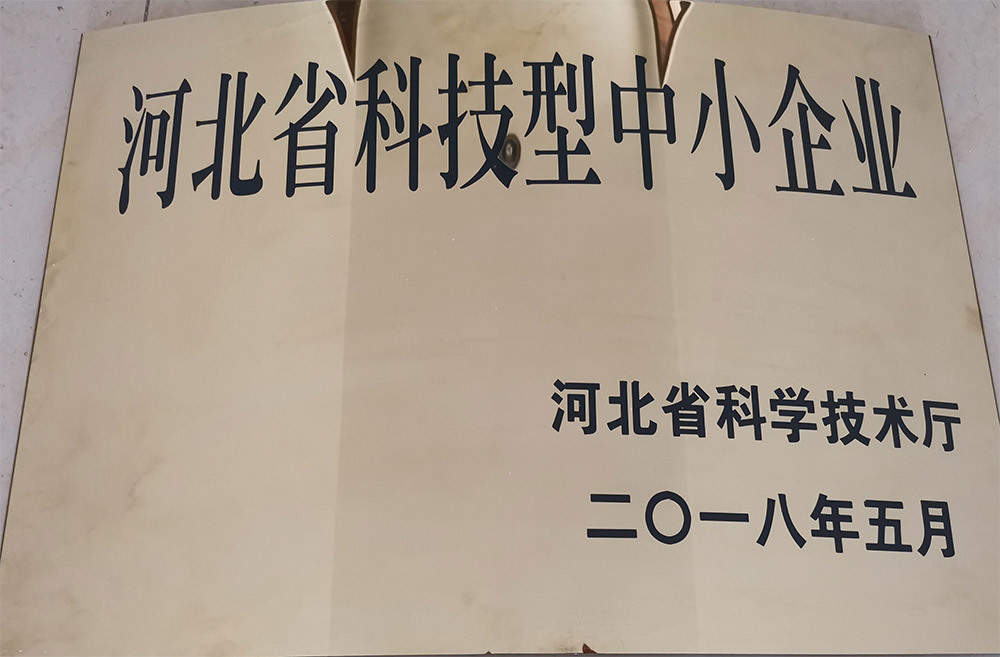 河北省科技型中小企业
河北省科学技术厅
二〇一八年五月